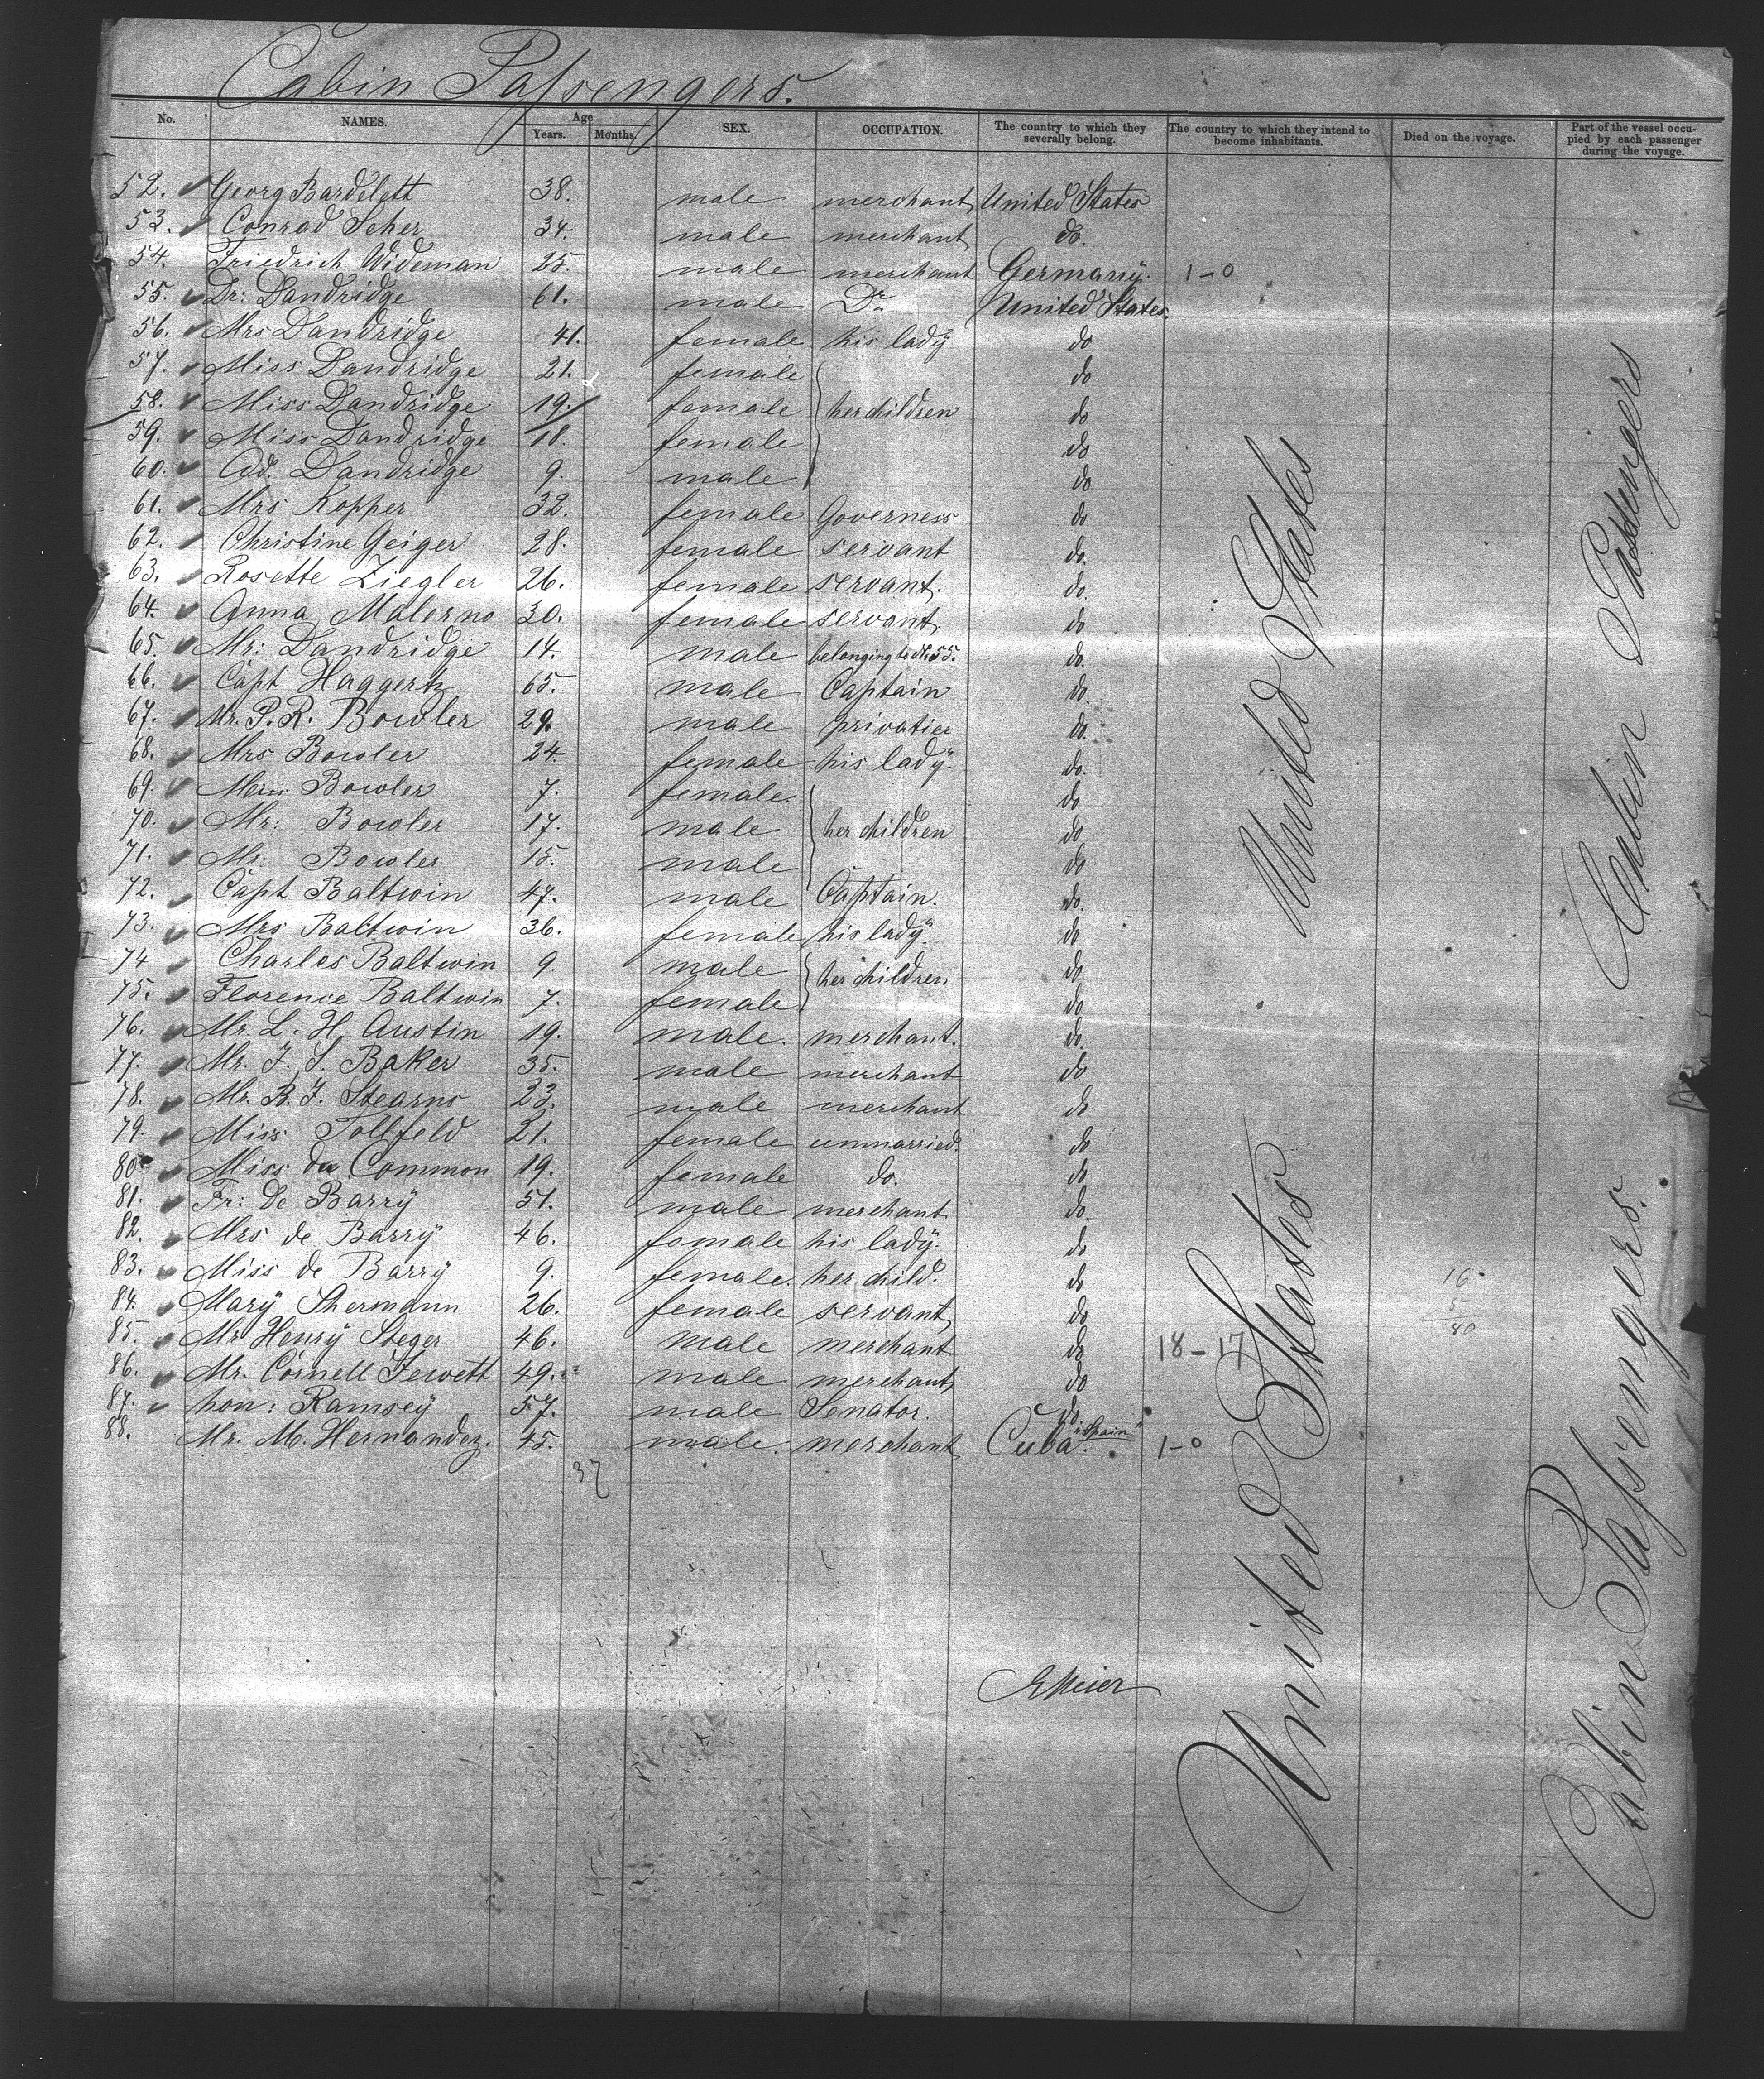 Cabin Passengers.
No. NAMES. Age Years. Months. SEX. OCCUPATION. The country to which they severally belong. The country to which they intend to become inhabitants. Died on the voyage. Part of the vessel occupied by each passenger during the voyage.
52. Georg Bardelett 38. male merchant United States
53. Conrad Scher 34. male merchant do.
54. Friedrich Wideman 25. male merchant Germany. 1-0
55. Dr: Dandridge 61. male Dr. United States.
56. Mrs Dandridge 41. female his lady do
57. Miss Dandridge 21. female do
58. Miss Dandridge 19. female her children do
59. Miss Dandridge 18. female do
60. Ad. Dandridge 9. male do
61. Mrs Kopper 32. female Governess do
62. Christine Geiger 28. female servant do.
63. Rosette Ziegler 26. female servant. do.
64. Anna Malerno 30. female servant. do
65. Mr: Dandridge 14. male belonging to No 55. do.
66. Capt Haggertz 65. male Captain do
67. Mr. P. R. Bowler 29. male privatier do.
68. Mrs Bowler 24. female his lady. do.
69. Bowler 7. female do
70. Mr: Bowler 17. male her children do
71. Mr: Bowler 15. male do
72. Capt Baltwin 47. male Captain. do.
73. Mrs Baltwin 36. female his lady. do
74 Charles Baltwin 9. male her children. do
75. Florence Baltwin 7. female do
76. Mr. L. H. Austin 19. male. merchant. do.
77. Mr. F. S. Baker 35. male merchant do
78. Mr. B. F. Stearns 23. male merchant do
79. Miss Tollfeld 21. female unmarried. do
80. Miss da Common 19. female do. do
81. Fr: De Barry 51. male merchant. do.
82. Mrs de Barry 46. female his lady. do
83. Miss de Barry 9. female. her child. do
84. Mary Shermann 26. female servant do
85. Mr Henry Steger 46. male merchant do 18-17
86. Mr. Cornell Jewett 49. male merchant do
87. hon: Ramsey 57. male Senator. do
88. Mr. M. Hernandez. 45. male. merchant Cuba. "Spain" 1-0
37
16
5
80
EMeier
United States
United States
Cabin Passengers
Cabin Passengers.